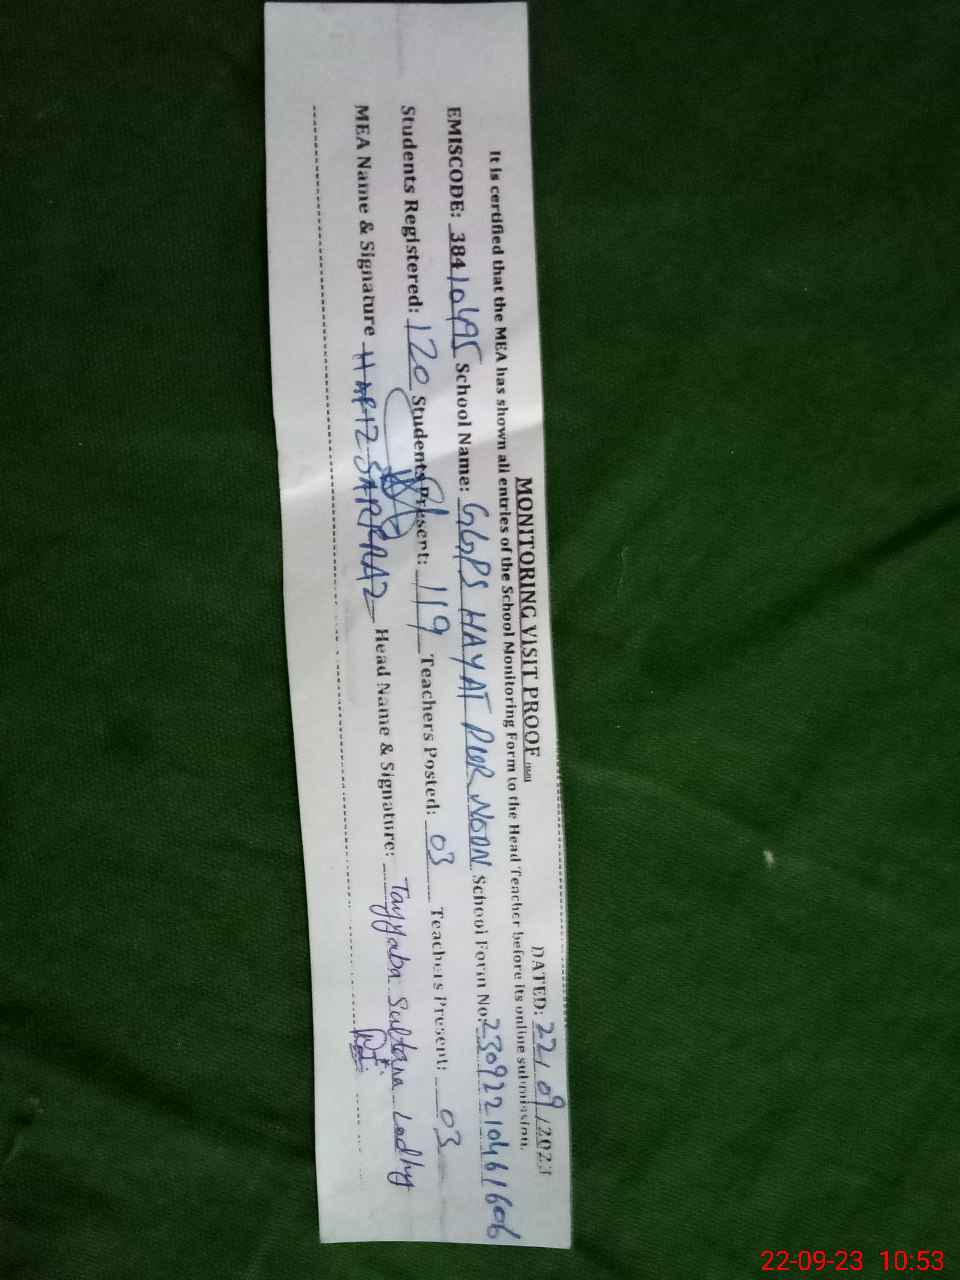 MONITORING VISIT PROOF
DATED: 22/09/2023
It is certified that the MEA has shown all entries of the School Monitoring Form to the Head Teacher before its online submission.
EMISCODE: 38410495 School Name: GGPS HAYAT PUR NOON School Form No: 23092210461606
Students Registered: 120 Students Present: 119 Teachers Posted: 03 Teachers Present: 03
MEA Name & Signature HAFIZ SARFRAZ Head Name & Signature: Tayyaba Sultana Lodhy
22-09-23 10:53